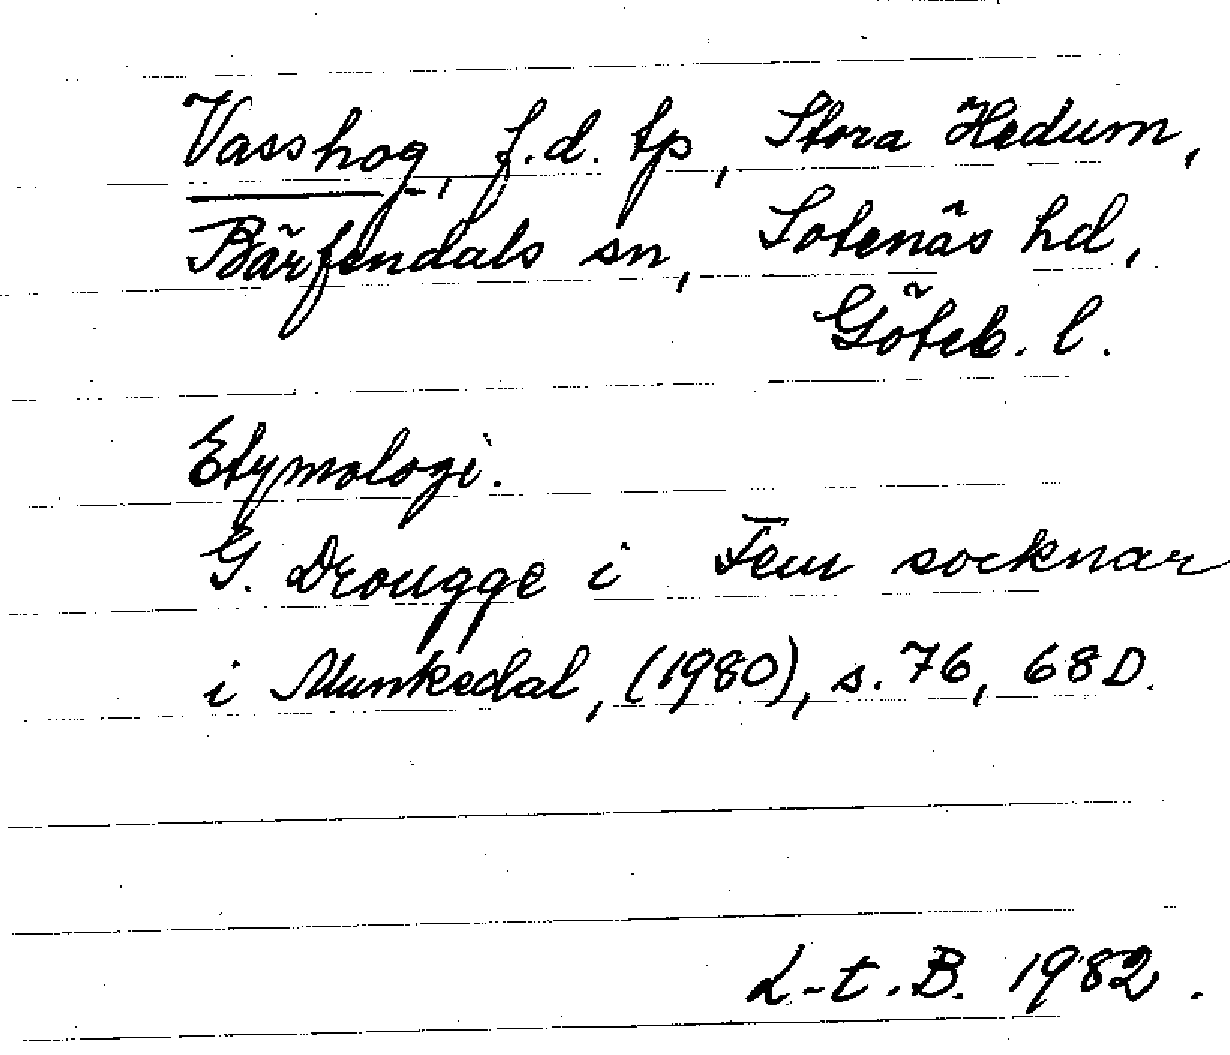 Vasshog, f.d. tp, Stora Hedum,
Bärfendals sn, Sotenäs hd,
Göteb. l.
Etymologi.
G. Drougge i Fem socknar
i Munkedal, (1980), s. 76, 68 D.
L-t. B. 1982.